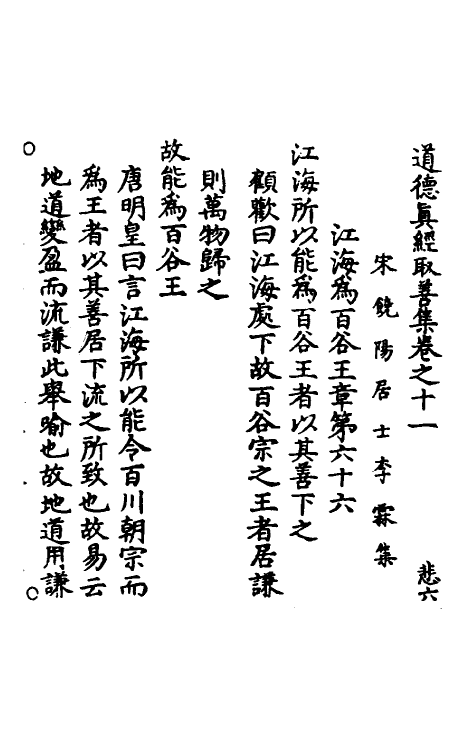 道德眞經取善集卷之十一　悲六
宋饒陽居士李霖集
江海爲百谷王章第六十六
江海所以能爲百谷王者以其善下之
顧歡曰江海處下故百谷宗之王者居謙
則萬物歸之
故能爲百谷王
唐明皇曰言江海所以能令百川朝宗而
爲王者以其善居下流之所致也故易云
地道變盈而流謙此舉喻也故地道用謙